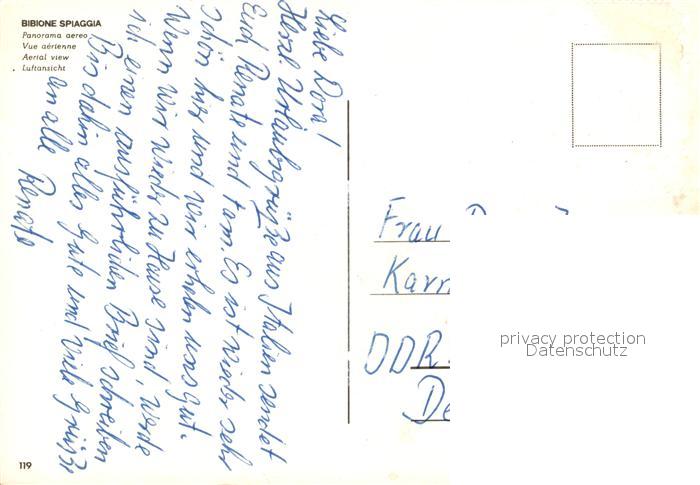 BIBIONE SPIAGGIA
Panorama aereo
Vue aérienne
Aerial view
Luftansicht
Liebe Dora!
Herzl. Urlaubsgrüße aus Italien sendet
Euch Renate und Fam. Es ist wieder sehr
schön hier und wir erholen uns gut.
Wenn wir wieder zu Hause sind, werde
ich einen ausführlichen Brief schreiben
Bis dahin alles Gute und viele Grüße
an alle Renate
Frau
DDR.
119
privacy protection
Datenschutz